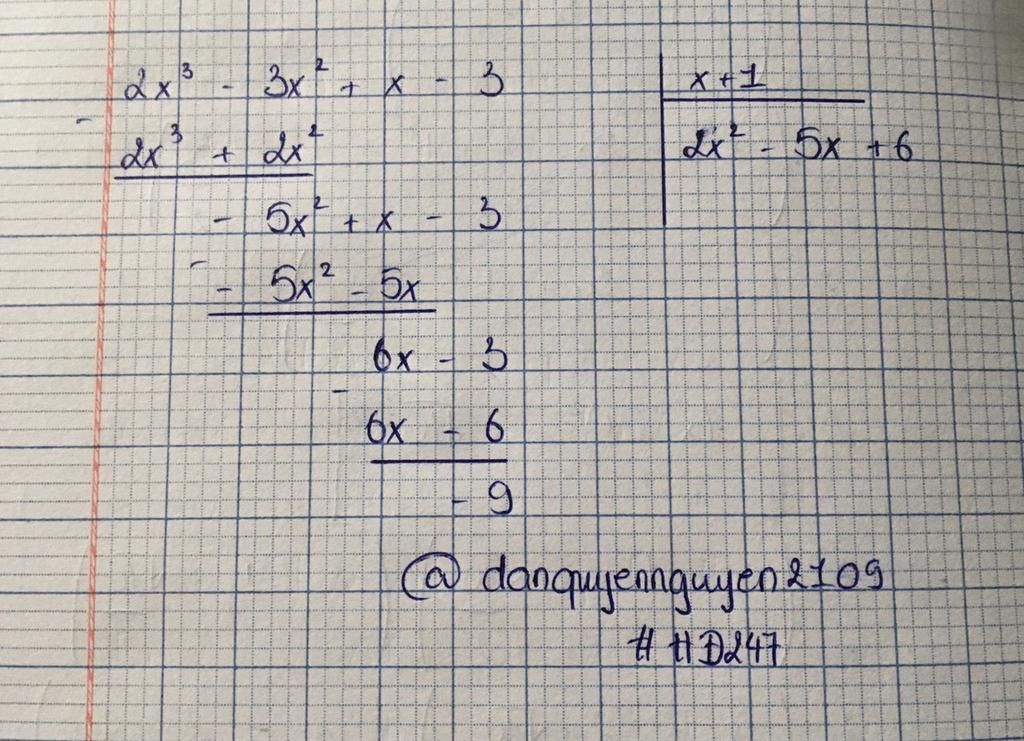 2x³ - 3x² + x - 3 | x+1
-
2x³ + 2x² | 2x² - 5x + 6
- 5x² + x - 3
-
- 5x² - 5x
6x - 3
-
6x - 6
- 9
@ danquyennguyen2109
# HD247